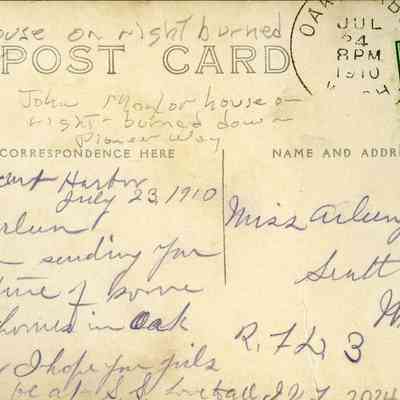 ouse on right burned
POST CARD
OAK
JUL
24
8PM
1910
John Maylor house on
right - burned down
Pioneer Way
CORRESPONDENCE HERE
NAME AND ADDR
Harbor
July 23, 1910
Miss
sending you
ture of some
homes in Oak
Seatt
R.F.D. 3
I hope you girls
be at